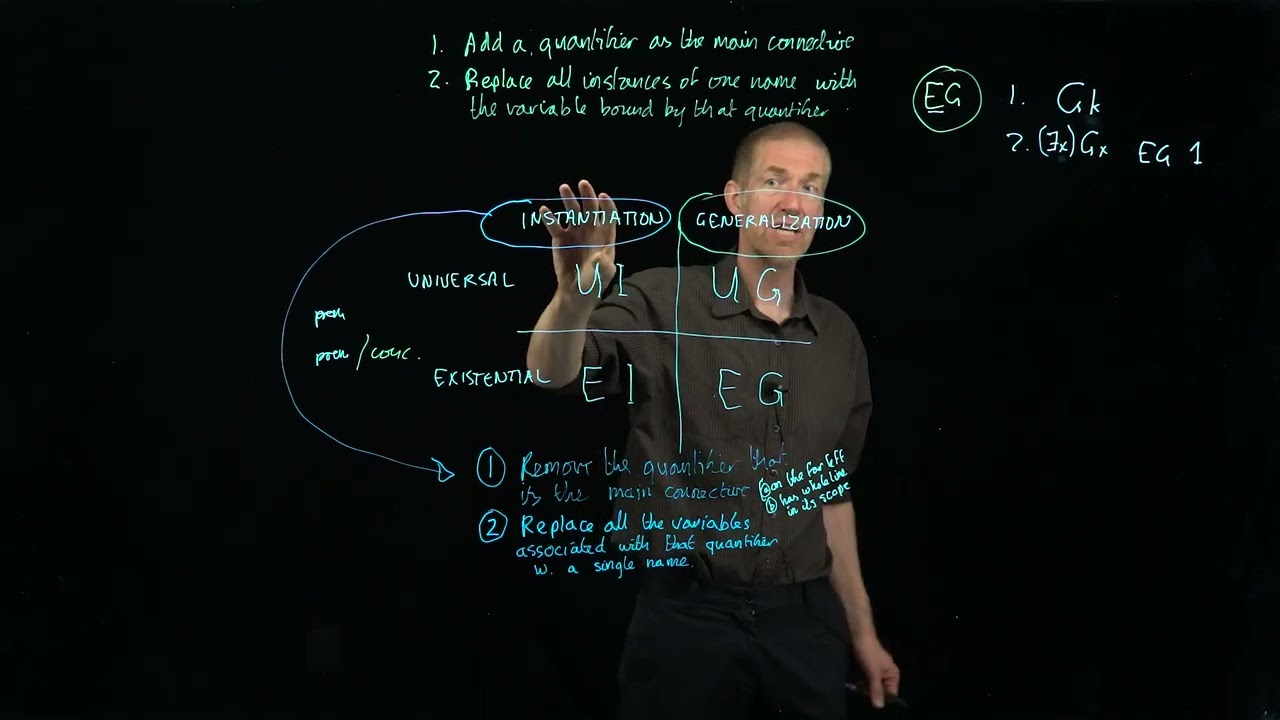 1. Add a quantifier as the main connective
2. Replace all instances of one name with
the variable bound by that quantifier.
EG
1. Gk
2. (∃x)Gx EG 1
INSTANTIATION GENERALIZATION
UNIVERSAL UI UG
prem
prem / conc.
EXISTENTIAL EI EG
1 Remove the quantifier that
is the main connective
a on the far left
b has whole line
in its scope
2 Replace all the variables
associated with that quantifier
w. a single name.